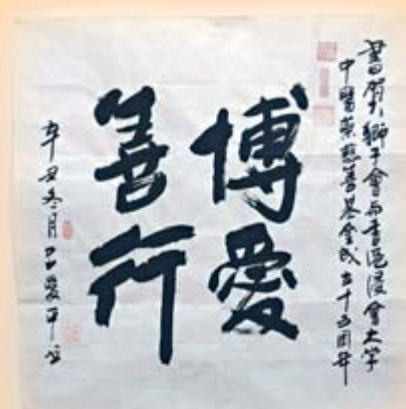 書贺獅子會与香港浸會大学
中醫藥慈善基金成立十五周年
博愛
善行
辛丑冬月呂愛平